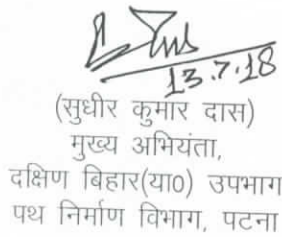 13.7.18
(सुधीर कुमार दास)
मुख्य अभियंता,
दक्षिण बिहार(या०) उपभाग
पथ निर्माण विभाग, पटना